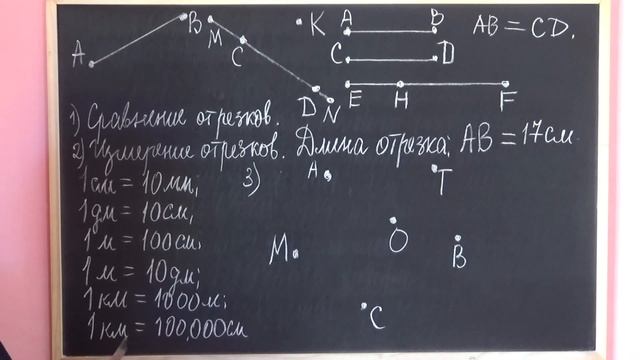 A B M C D N K
A B AB = CD.
C D
E H F
1) Сравнение отрезков.
2) Измерение отрезков. Длина отрезка: AB = 17 см
1 см = 10 мм; 3) A T
1 дм = 10 см,
1 м = 100 см, M O B
1 м = 10 дм;
1 км = 1000 м; C
1 км = 100,000 см